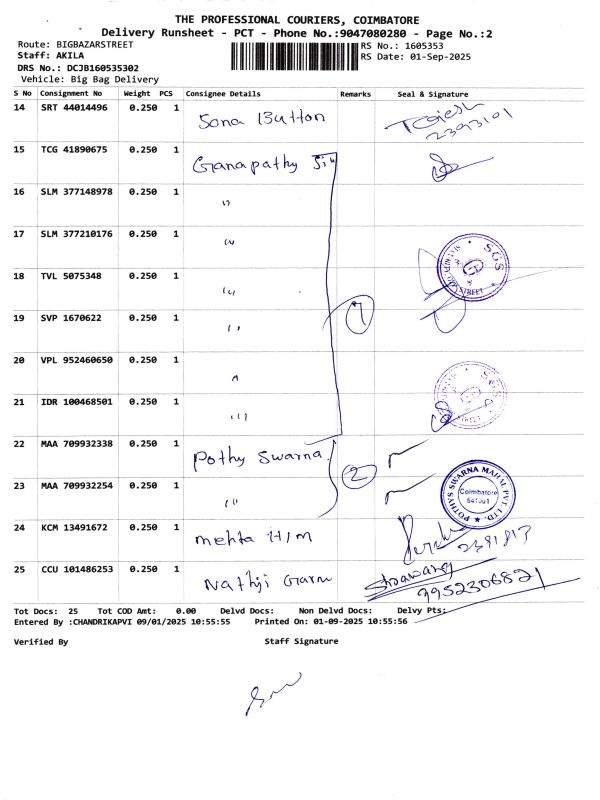 THE PROFESSIONAL COURIERS, COIMBATORE
Delivery Runsheet - PCT - Phone No.:9047080280 - Page No.:2
Route: BIGBAZARSTREET RS No.: 1605353
Staff: AKILA RS Date: 01-Sep-2025
DRS No.: DCJB160535302
Vehicle: Big Bag Delivery
S No Consignment No Weight PCS Consignee Details Remarks Seal & Signature
14 SRT 44014496 0.250 1 Sona Button
15 TCG 41890675 0.250 1 Ganapathy
16 SLM 377148978 0.250 1 "
17 SLM 377210176 0.250 1 " SGS
18 TVL 5075348 0.250 1 " STREET
19 SVP 1670622 0.250 1 " 7
20 VPL 952460650 0.250 1 "
21 IDR 100468501 0.250 1 " SGS
22 MAA 709932338 0.250 1 Pothy Swarna 2
23 MAA 709932254 0.250 1 " POTHYS SWARNA MAHAL PVT. LTD. Coimbatore 641001
24 KCM 13491672 0.250 1 Mehta H/M
25 CCU 101486253 0.250 1 Nathji 9952306821
Tot Docs: 25 Tot COD Amt: 0.00 Delvd Docs: Non Delvd Docs: Delvy Pts:
Entered By :CHANDRIKAPVI 09/01/2025 10:55:55 Printed On: 01-09-2025 10:55:56
Verified By Staff Signature